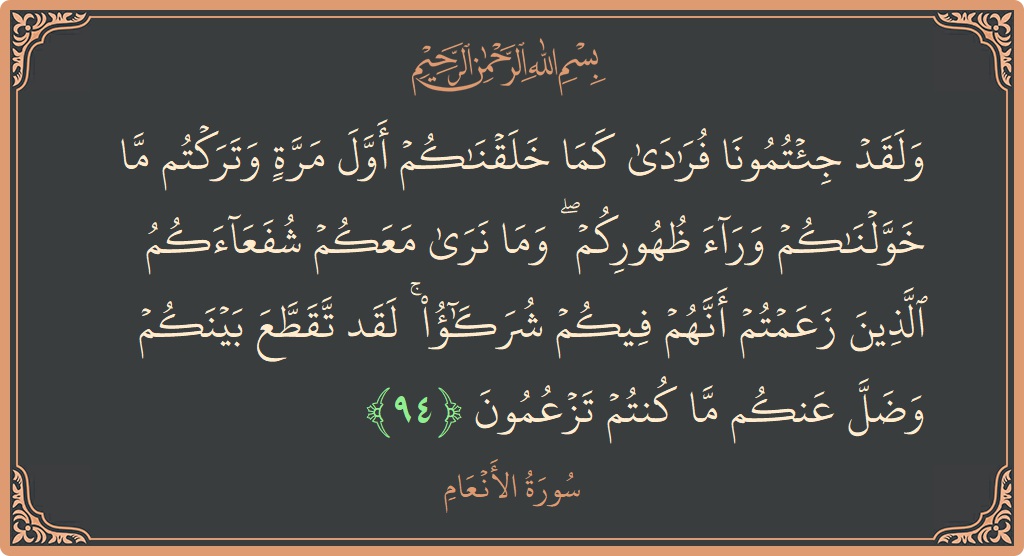 بِسْمِ اللَّهِ الرَّحْمَٰنِ الرَّحِيمِ
وَلَقَدۡ جِئۡتُمُونَا فُرَٰدَىٰ كَمَا خَلَقۡنَٰكُمۡ أَوَّلَ مَرَّةٖ وَتَرَكۡتُم مَّا
خَوَّلۡنَٰكُمۡ وَرَآءَ ظُهُورِكُمۡۖ وَمَا نَرَىٰ مَعَكُمۡ شُفَعَآءَكُمُ
ٱلَّذِينَ زَعَمۡتُمۡ أَنَّهُمۡ فِيكُمۡ شُرَكَٰٓؤُاْۚ لَقَد تَّقَطَّعَ بَيۡنَكُمۡ
وَضَلَّ عَنكُم مَّا كُنتُمۡ تَزۡعُمُونَ ﴿٩٤﴾
سُورَةُ الأَنۡعَامِ